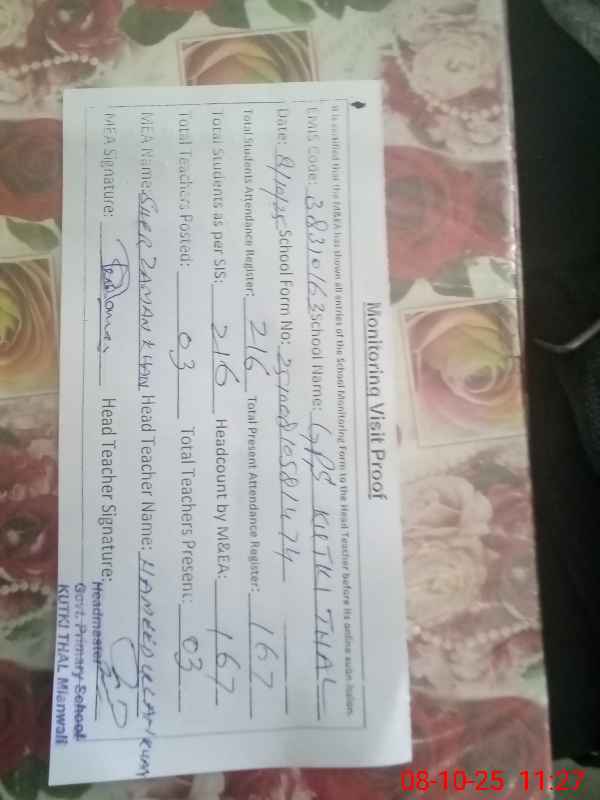 Monitoring Visit Proof
It is certified that the M&EA has shown all entries of the School Monitoring Form to the Head Teacher before its online submission.
EMIS Code: 38310163 School Name: GPS KUTKI THAL
Date: 8/10/25 School Form No:
Total Students Attendance Register: 216 Total Present Attendance Register: 167
Total Students as per SIS: 216 Headcount by M&EA: 167
Total Teachers Posted: 03 Total Teachers Present: 03
MEA Name: SHER ZAMAN KHAN Head Teacher Name:
MEA Signature: Head Teacher Signature:
Headmaster
Govt. Primary School
KUTKI THAL Mianwali
08-10-25 11:27